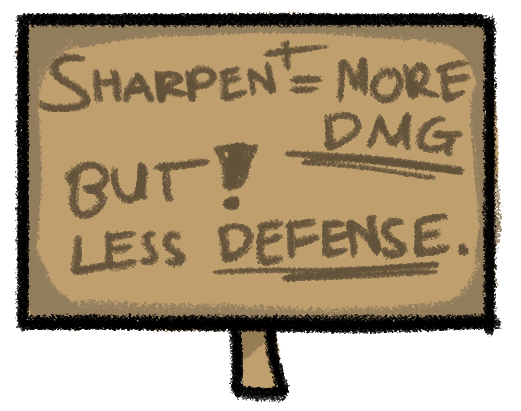 SHARPEN+ = MORE
DMG
BUT!
LESS DEFENSE.